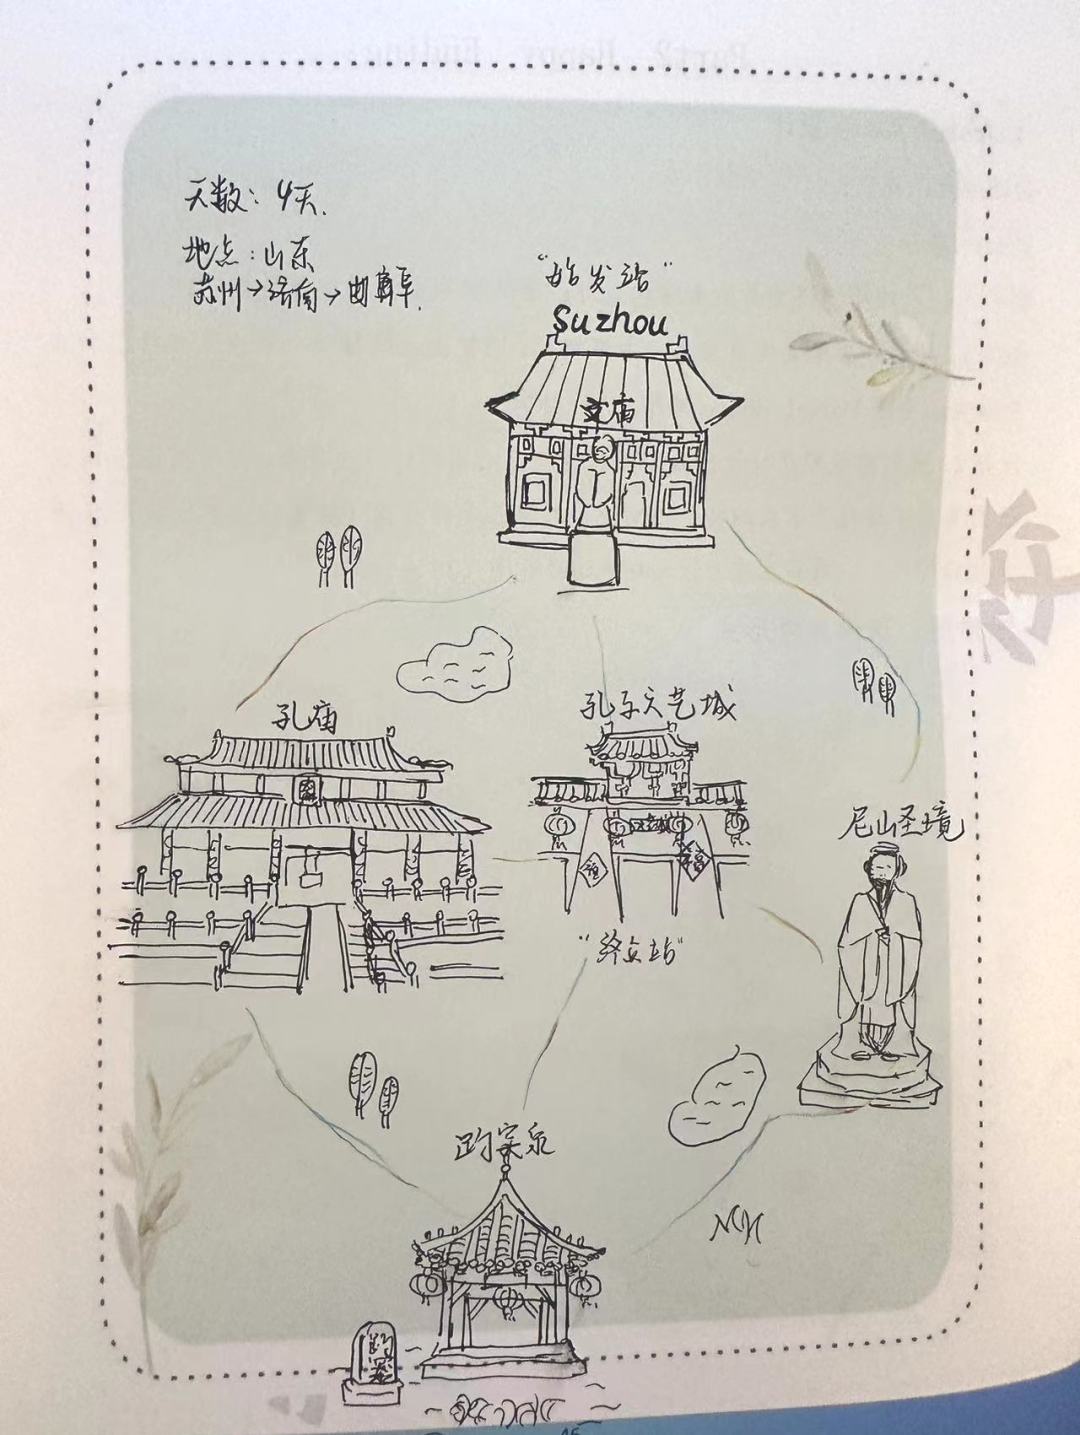 天数：4天.
地点：山东
苏州→济南→曲阜.
“始发站”
Suzhou
文庙
孔庙
孔子文艺城
福
尼山圣境
“终点站”
趵突泉
NH
趵突